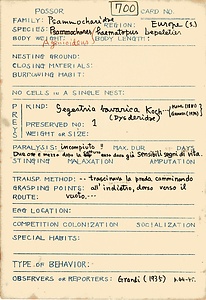 FOSSOR 700 CARD NO.
FAMILY: Psammocharidae Europe (s.)
SPECIES: Psammochares/Haematopus Lepeletier
BODY WEIGHT: BODY LENGTH:
Agenioideus
NESTING GROUND:
CLOSING MATERIALS:
BURROWING HABIT:
NO CELLS IN A SINGLE NEST:
PREY
KIND: Segestria bavarica Koch
(Dysderidae)
PRESERVED NO: 1
WEIGHT OR SIZE:
PARALYSIS: incompiuto !! MAX. DUR DAYS
Due ore e mezzo dopo la essa dava già sensibili segni di vita.
STINGING MALAXATION AMPUTATION
TRANSP. METHOD: -- trascinava la preda camminando
GRASPING POINTS: all'indietro, dorso verso il
ROUTE: vuoto. --
EGG LOCATION:
COMPETITION COLONIZATION SOCIALIZATION
SPECIAL HABITS:
TYPE OF BEHAVIOR:
OBSERVERS OR REPORTERS: Grandi (1935)